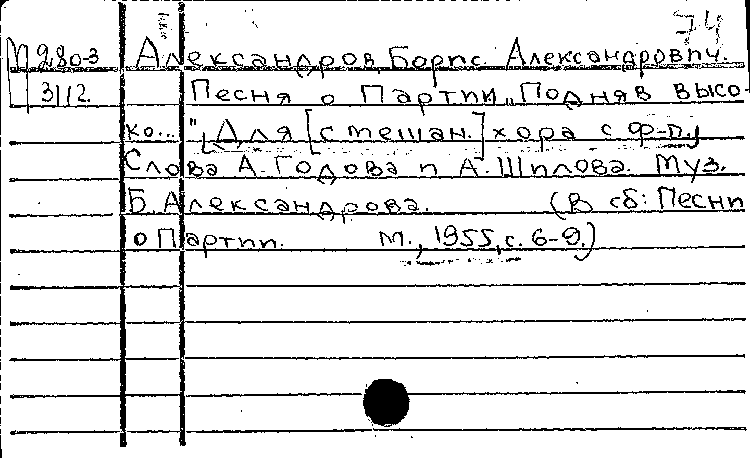 74
М 280-3 Александров, Борис Александрович.
3112. Песня о Партии „Подняв высо-
ко..." [Для [смешан.] хора с ф-п.]
Слова А. Годова и А. Шилова. Муз.
Б. Александрова. (В сб: Песни
о Партии. М., 1955, с. 6-9.)